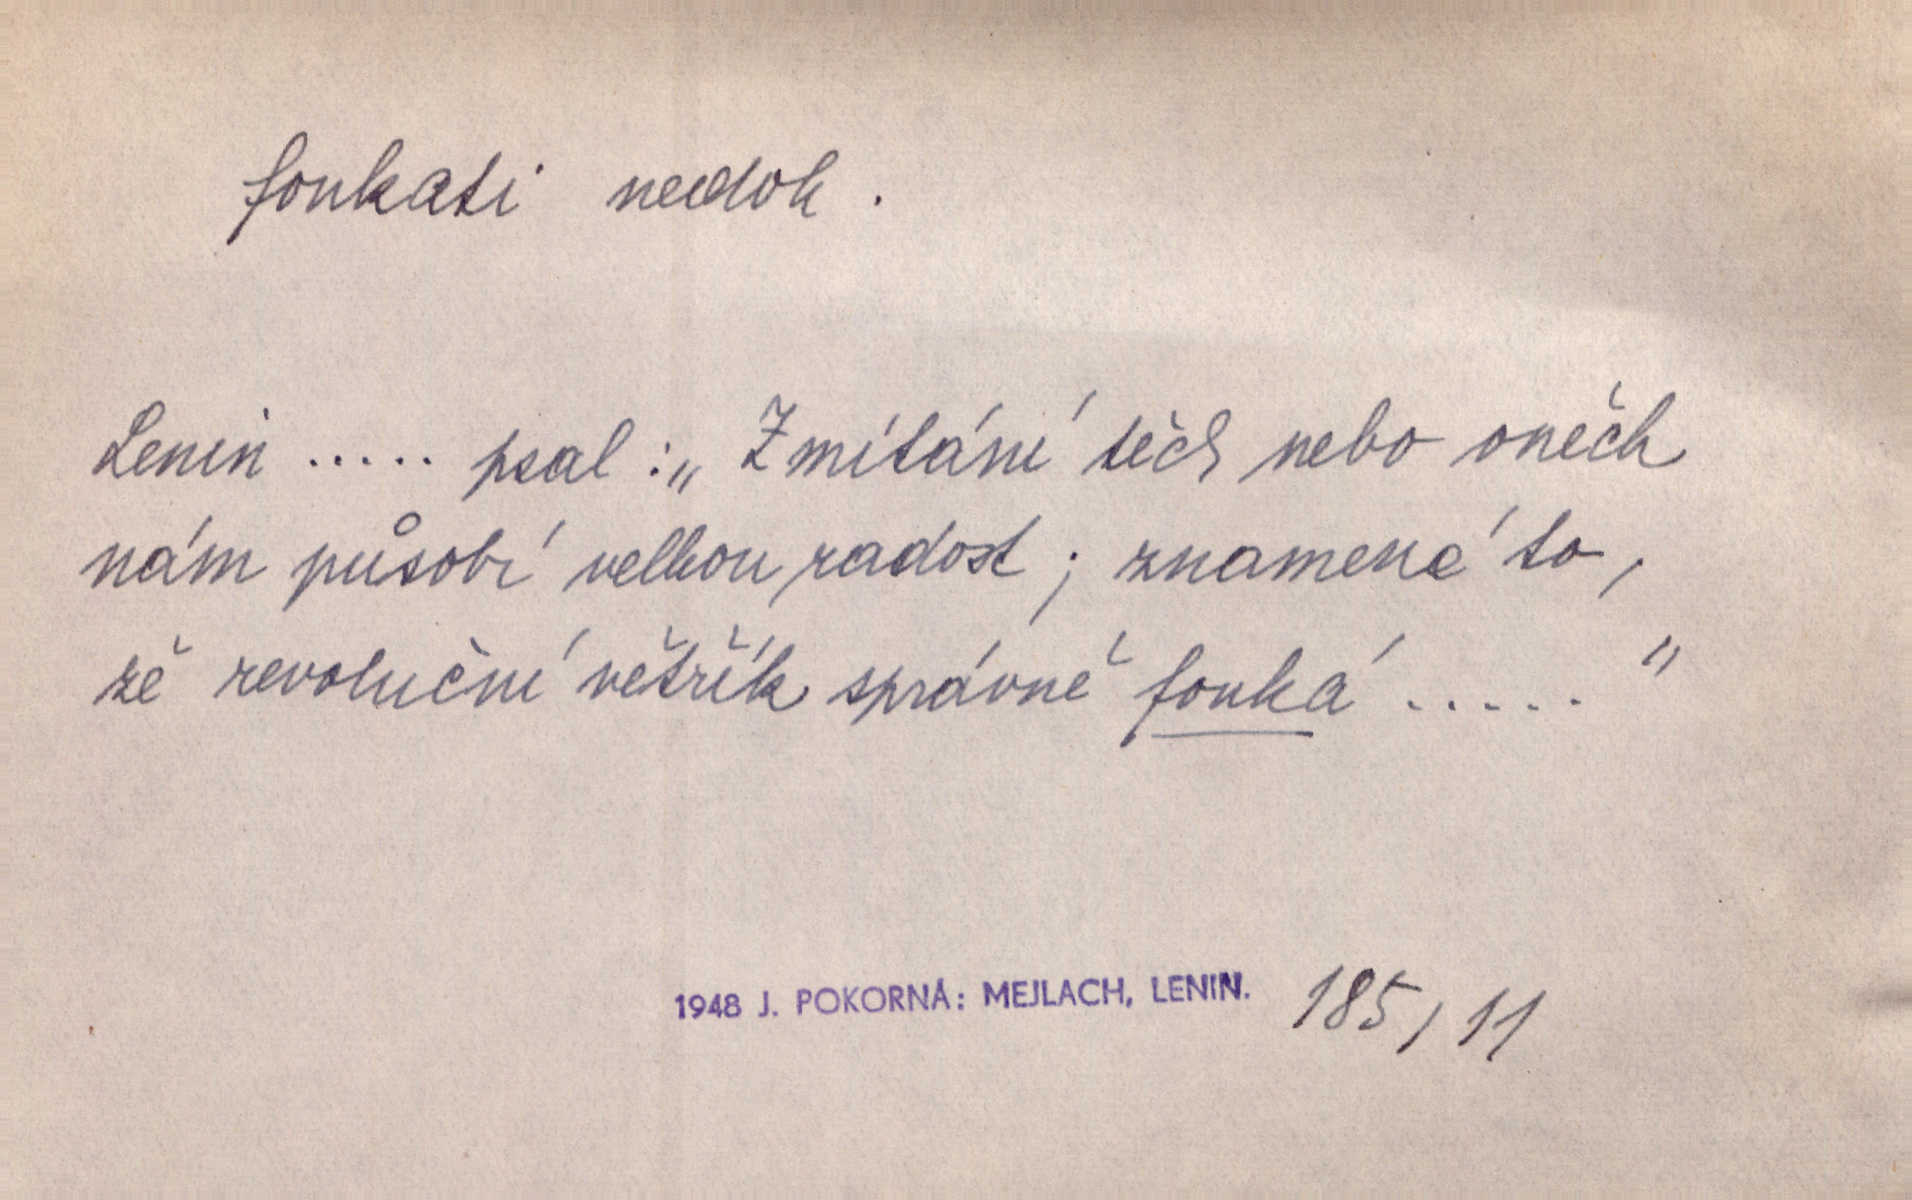 foukati nedok.
Lenin ..... psal: „Zmítání těch nebo oněch
nám působí velkou radost; znamená to,
že revoluční větřík správně fouká ..... "
1948 J. POKORNÁ: MEJLACH, LENIN. 185/11